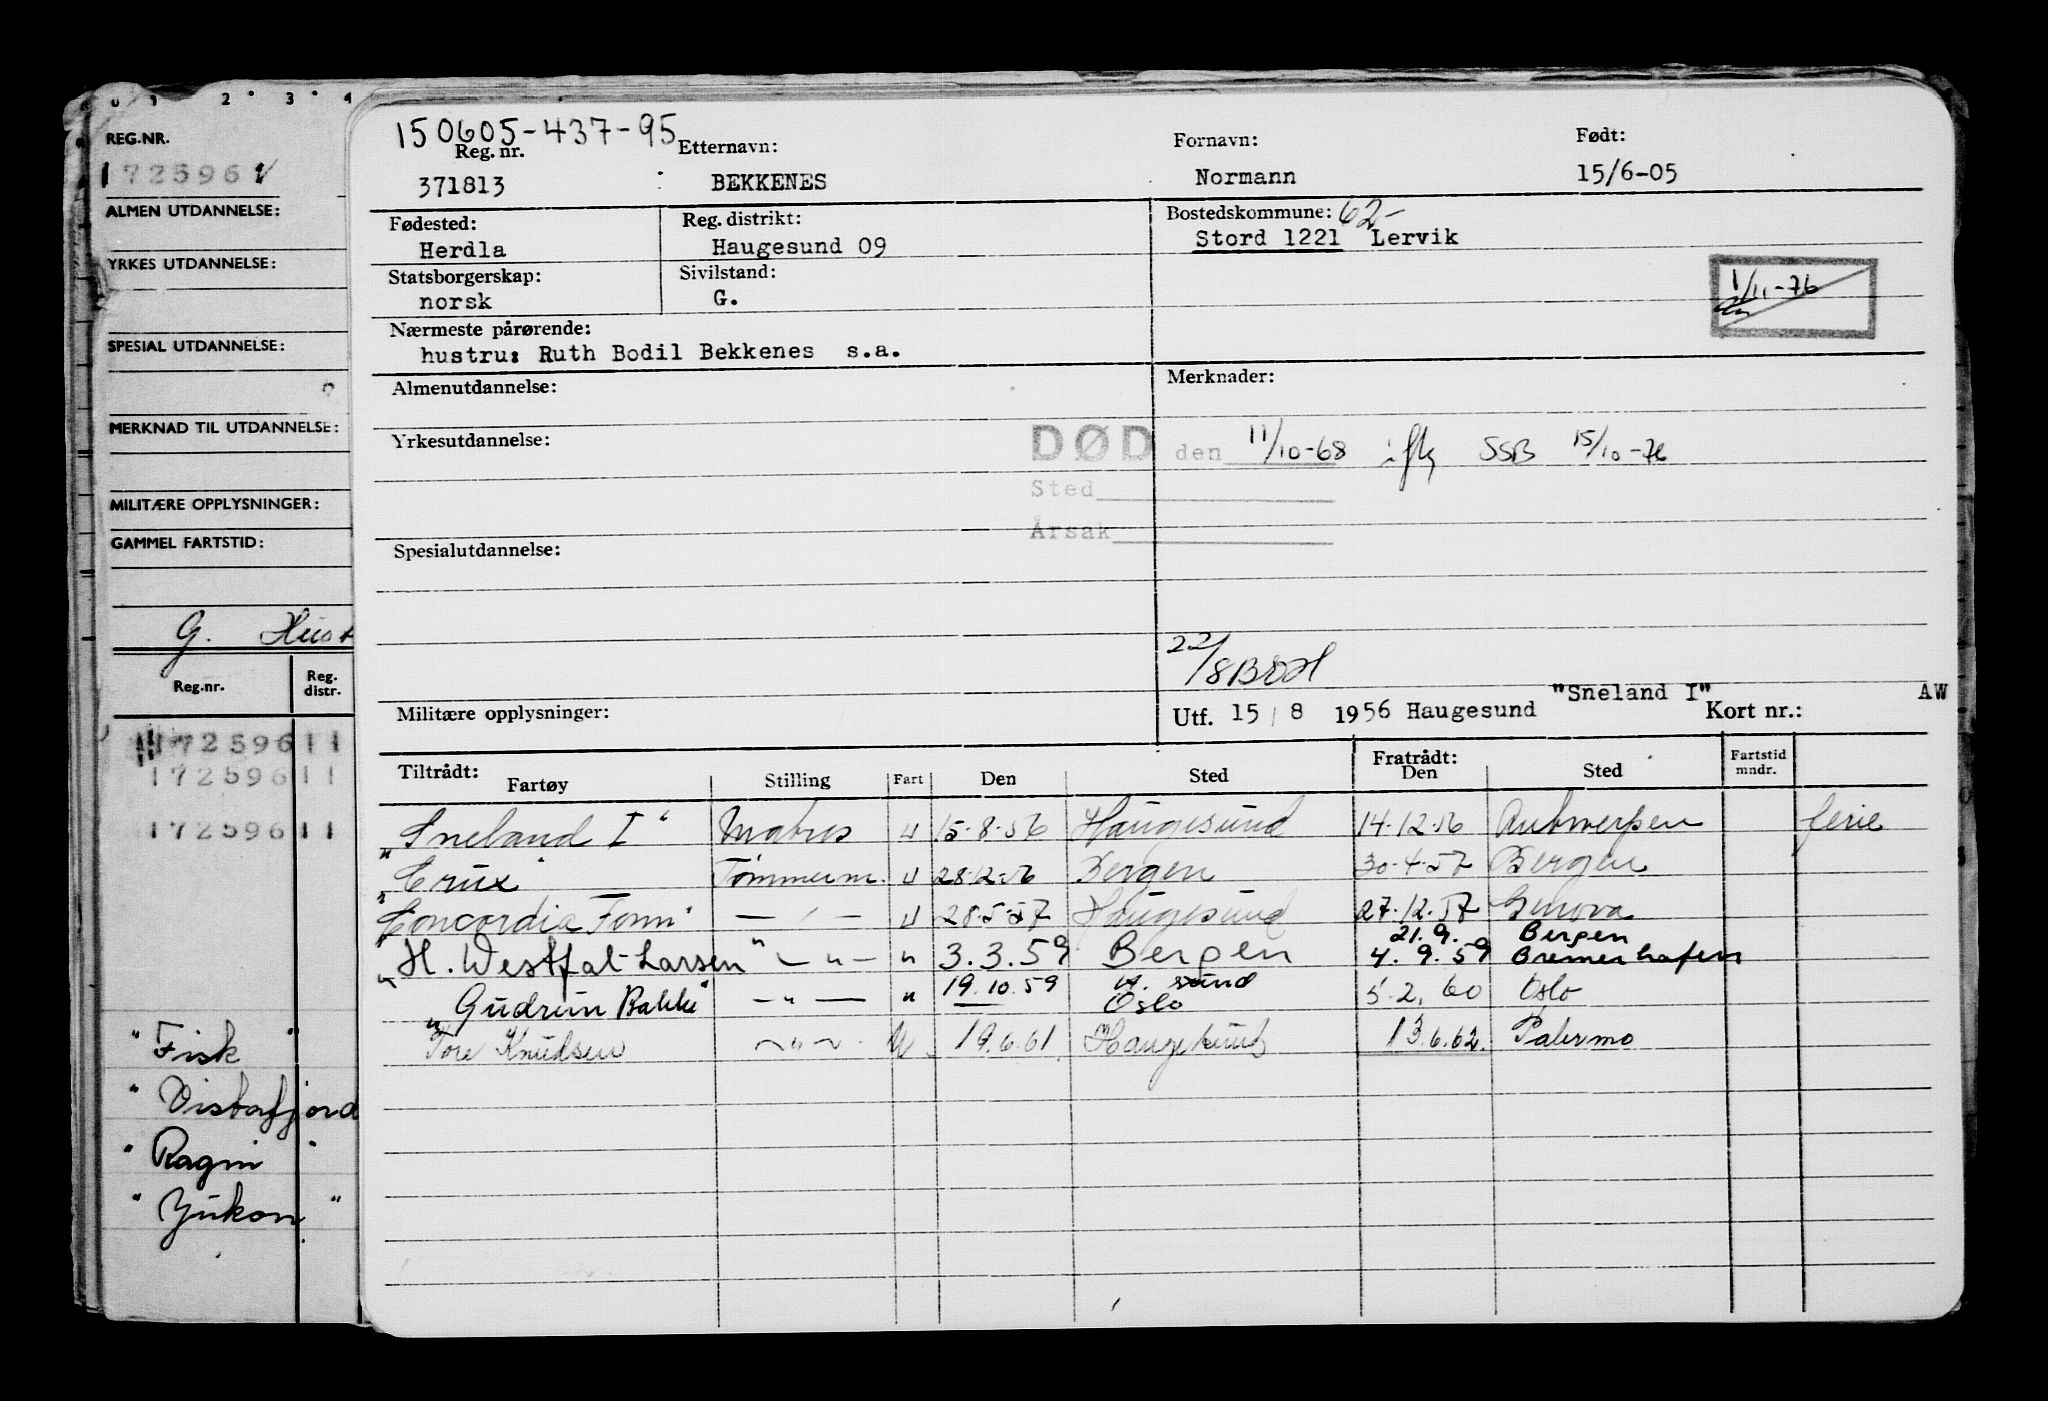 0 1 2 3 4
REG.NR.
1725961
ALMEN UTDANNELSE:
YRKES UTDANNELSE:
SPESIAL UTDANNELSE:
MERKNAD TIL UTDANNELSE:
MILITÆRE OPPLYSNINGER:
GAMMEL FARTSTID:
G. Hust
Reg.nr. Reg. distr.
1725961 1
1725961 1
1725961 1
"Fisk"
"Vistafjord
"Ragni"
"Yukon"
150605-437-95
Reg. nr. Etternavn: Fornavn: Født:
371813 BEKKENES Normann 15/6-05
Fødested: Reg. distrikt: Bostedskommune: 62-
Herdla Haugesund 09 Stord 1221 Lervik
Statsborgerskap: Sivilstand:
norsk G.
1/11-76
Nærmeste pårørende:
hustru: Ruth Bodil Bekkenes s.a.
Almenutdannelse: Merknader:
Yrkesutdannelse:
DØD den 11/10-68 iflg SSB 15/10-76
Sted
Årsak
Spesialutdannelse:
22/8
Militære opplysninger: Utf. 15/8 1956 Haugesund "Sneland I" Kort nr.: AW
Tiltrådt: Fartøy Stilling Fart Den Sted Fratrådt: Den Sted Fartstid mndr.
"Sneland I" Matros U 15-8-56 Haugesund 14-12-56 Antwerpen ferie
"Crux" Tømmerm. U 28-12-56 Bergen 30-4-57 Bergen
"Concordia Fonn" — " — U 28-5-57 Haugesund 27-12-57 Genova
21.9. Bergen
"H. Westfal-Larsen" — " — " 3.3.59 Bergen 4.9.59 Bremerhafen
"Gudrun Bakke" — " — " 19.10.59 H. sund Oslo 5.2.60 Oslo
"Tore Knudsen — " — U 19.6.61 Haugesund 13.6.62. Palermo